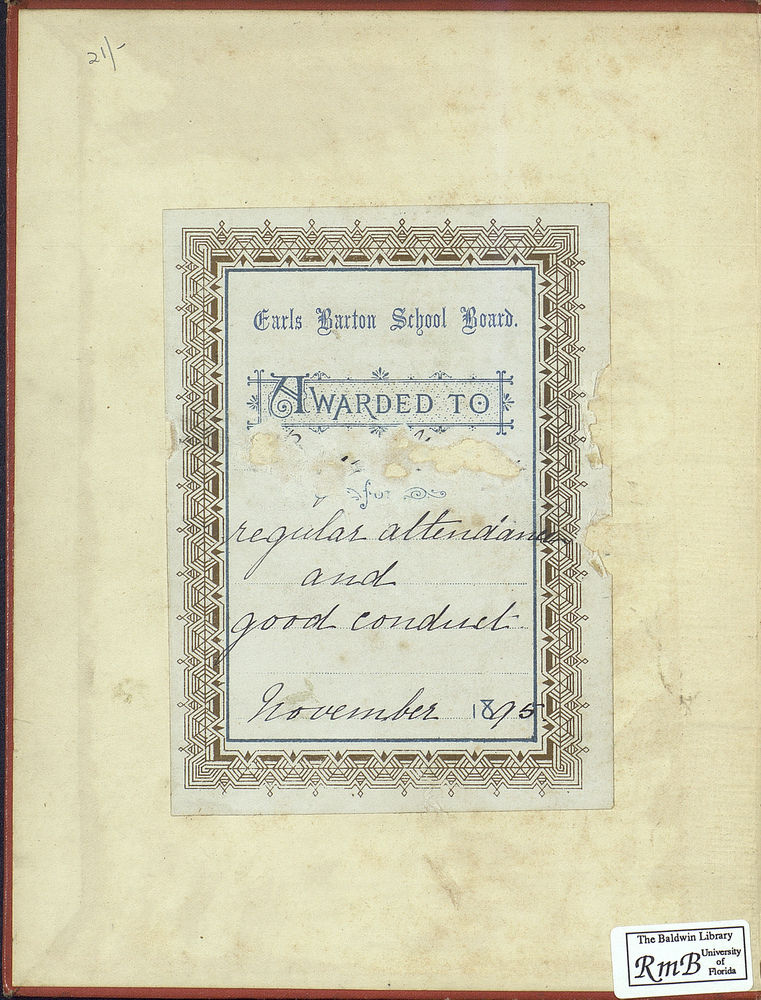 21/-
Earls Barton School Board.
AWARDED TO
for
regular attendance
and
good conduct
November 1895
The Baldwin Library
RmB University of Florida